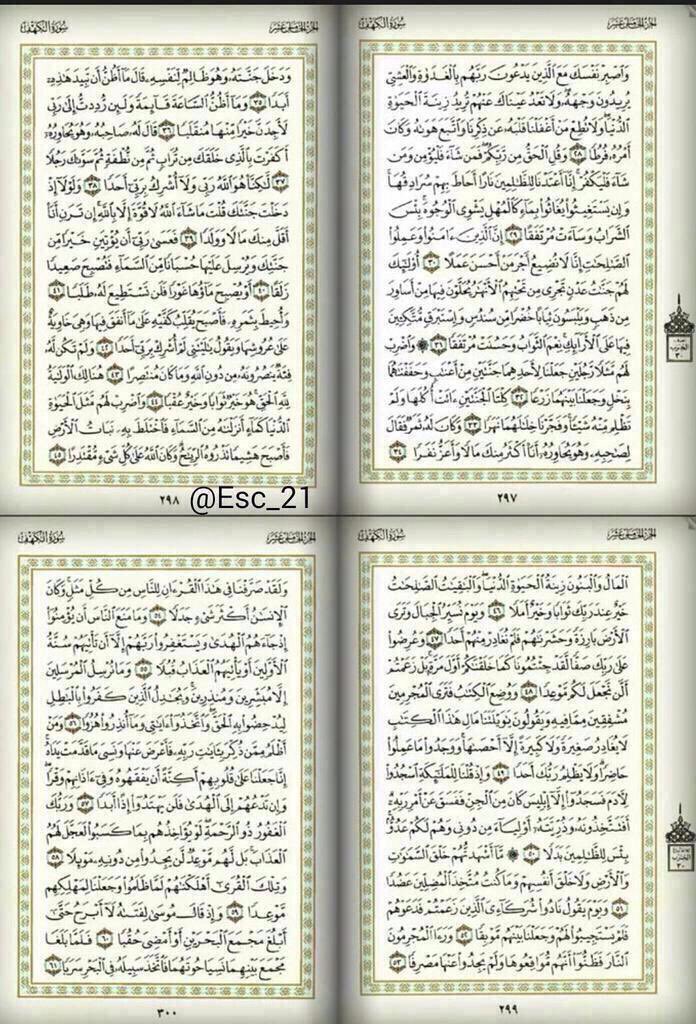 سورة الكهف
الجزء الخامس عشر
واصبر نفسك مع الذين يدعون ربهم بالغدوة والعشي
يريدون وجهه ولا تعد عيناك عنهم تريد زينة الحيوة
الدنيا ولا تطع من أغفلنا قلبه عن ذكرنا واتبع هوىه وكان
أمره فرطا ٢٨ وقل الحق من ربكم فمن شاء فليؤمن ومن
شاء فليكفر إنا أعتدنا للظلمين نارا أحاط بهم سرادقها
وإن يستغيثوا يغاثوا بماء كالمهل يشوى الوجوه بئس
الشراب وساءت مرتفقا ٢٩ إن الذين ءامنوا وعملوا
الصلحت إنا لا نضيع أجر من أحسن عملا ٣٠ أولئك
لهم جنت عدن تجرى من تحتهم الأنهر يحلون فيها من أساور
من ذهب ويلبسون ثيابا خضرا من سندس وإستبرق متكئين
فيها على الأرائك نعم الثواب وحسنت مرتفقا ٣١ ۞ واضرب
لهم مثلا رجلين جعلنا لأحدهما جنتين من أعنب وحففنهما
بنخل وجعلنا بينهما زرعا ٣٢ كلتا الجنتين ءاتت أكلها ولم
تظلم منه شيئا وفجرنا خللهما نهرا ٣٣ وكان له ثمر فقال
لصحبه وهو يحاوره أنا أكثر منك مالا وأعز نفرا ٣٤
٢٩٧
سورة الكهف
الجزء الخامس عشر
ودخل جنته وهو ظالم لنفسه قال ما أظن أن تبيد هذه
أبدا ٣٥ وما أظن الساعة قائمة ولئن رددت إلى ربى
لأجدن خيرا منها منقلبا ٣٦ قال له صاحبه وهو يحاوره
أكفرت بالذى خلقك من تراب ثم من نطفة ثم سوىك رجلا
٣٧ لكنا هو الله ربى ولا أشرك بربى أحدا ٣٨ ولولا إذ
دخلت جنتك قلت ما شاء الله لا قوة إلا بالله إن ترن أنا
أقل منك مالا وولدا ٣٩ فعسى ربى أن يؤتين خيرا من
جنتك ويرسل عليها حسبانا من السماء فتصبح صعيدا
زلقا ٤٠ أو يصبح ماؤها غورا فلن تستطيع له طلبا ٤١
وأحيط بثمره فأصبح يقلب كفيه على ما أنفق فيها وهى خاوية
على عروشها ويقول يليتنى لم أشرك بربى أحدا ٤٢ ولم تكن له
فئة ينصرونه من دون الله وما كان منتصرا ٤٣ هنالك الولية
لله الحق هو خير ثوابا وخير عقبا ٤٤ واضرب لهم مثل الحيوة
الدنيا كماء أنزلنه من السماء فاختلط به نبات الأرض
فأصبح هشيما تذروه الريح وكان الله على كل شىء مقتدرا ٤٥
٢٩٨
@Esc_21
سورة الكهف
الجزء الخامس عشر
المال والبنون زينة الحيوة الدنيا والبقيت الصلحت
خير عند ربك ثوابا وخير أملا ٤٦ ويوم نسير الجبال وترى
الأرض بارزة وحشرنهم فلم نغادر منهم أحدا ٤٧ وعرضوا
على ربك صفا لقد جئتمونا كما خلقنكم أول مرة بل زعمتم
ألن نجعل لكم موعدا ٤٨ ووضع الكتب فترى المجرمين
مشفقين مما فيه ويقولون يويلتنا مال هذا الكتب
لا يغادر صغيرة ولا كبيرة إلا أحصىها ووجدوا ما عملوا
حاضرا ولا يظلم ربك أحدا ٤٩ وإذ قلنا للملئكة اسجدوا
لأدم فسجدوا إلا إبليس كان من الجن ففسق عن أمر ربه
أفتتخذونه وذريته أولياء من دونى وهم لكم عدو
بئس للظلمين بدلا ٥٠ ۞ ما أشهدتهم خلق السموت
والأرض ولا خلق أنفسهم وما كنت متخذ المضلين عضدا
٥١ ويوم يقول نادوا شركاءى الذين زعمتم فدعوهم
فلم يستجيبوا لهم وجعلنا بينهم موبقا ٥٢ ورءا المجرمون
النار فظنوا أنهم مواقعوها ولم يجدوا عنها مصرفا ٥٣
٢٩٩
سورة الكهف
الجزء الخامس عشر
ولقد صرفنا فى هذا القرءان للناس من كل مثل وكان
الإنسن أكثر شىء جدلا ٥٤ وما منع الناس أن يؤمنوا
إذ جاءهم الهدى ويستغفروا ربهم إلا أن تأتيهم سنة
الأولين أو يأتيهم العذاب قبلا ٥٥ وما نرسل المرسلين
إلا مبشرين ومنذرين ويجدل الذين كفروا بالبطل
ليدحضوا به الحق واتخذوا ءايتى وما أنذروا هزوا ٥٦ ومن
أظلم ممن ذكر بءايت ربه فأعرض عنها ونسى ما قدمت يداه
إنا جعلنا على قلوبهم أكنة أن يفقهوه وفى ءاذانهم وقرا
وإن تدعهم إلى الهدى فلن يهتدوا إذا أبدا ٥٧ وربك
الغفور ذو الرحمة لو يؤاخذهم بما كسبوا لعجل لهم
العذاب بل لهم موعد لن يجدوا من دونه موئلا ٥٨
وتلك القرى أهلكنهم لما ظلموا وجعلنا لمهلكهم
موعدا ٥٩ وإذ قال موسى لفتىه لا أبرح حتى
أبلغ مجمع البحرين أو أمضى حقبا ٦٠ فلما بلغا
مجمع بينهما نسيا حوتهما فاتخذ سبيله فى البحر سربا ٦١
٣٠٠